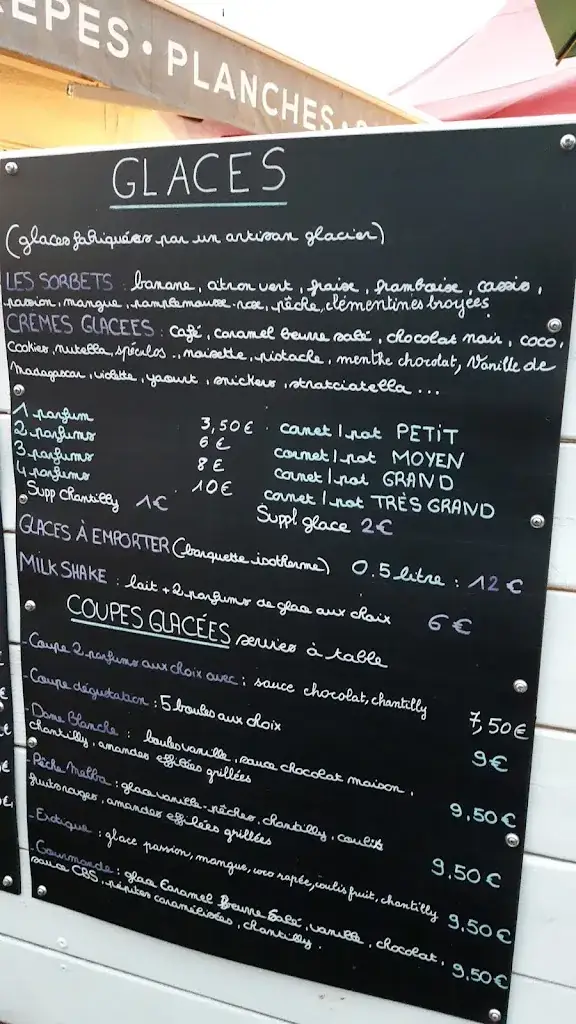 EPES · PLANCHES ·
GLACES
(glaces fabriquées par un artisan glacier)
LES SORBETS : banane, citron vert, fraise, framboise, cassis,
passion, mangue, pamplemousse-rose, pêche, clémentines broyées
CRÈMES GLACÉES : café, caramel beurre salé, chocolat noir, coco,
cookies, nutella, spéculos, noisette, pistache, menthe chocolat, Vanille de
Madagascar, violette, yaourt, snickers, stratciatella ...
1 parfum 3,50€ cornet / pot PETIT
2 parfums 6€ cornet / pot MOYEN
3 parfums 8€ cornet / pot GRAND
4 parfums 10€ cornet / pot TRÈS GRAND
Supp chantilly 1€ Suppl glace 2€
GLACES À EMPORTER (barquette isotherme) 0.5 litre : 12€
MILK SHAKE : lait + 2 parfums de glace aux choix 6€
COUPES GLACÉES servies à table
- Coupe 2 parfums aux choix avec : sauce chocolat, chantilly 7,50€
- Coupe dégustation : 5 boules aux choix 9€
- Dame Blanche : boules vanille, sauce chocolat maison,
chantilly, amandes effilées grillées 9,50€
- Pêche Melba : glace vanille - pêches, chantilly, coulis
fruits rouges, amandes effilées grillées 9,50€
- Exotique : glace passion, mangue, coco rapée, coulis fruit, chantilly 9,50€
- Gourmande : glace Caramel Beurre Salé, vanille, chocolat,
sauce CBS, pépites caramélisées, chantilly. 9,50€